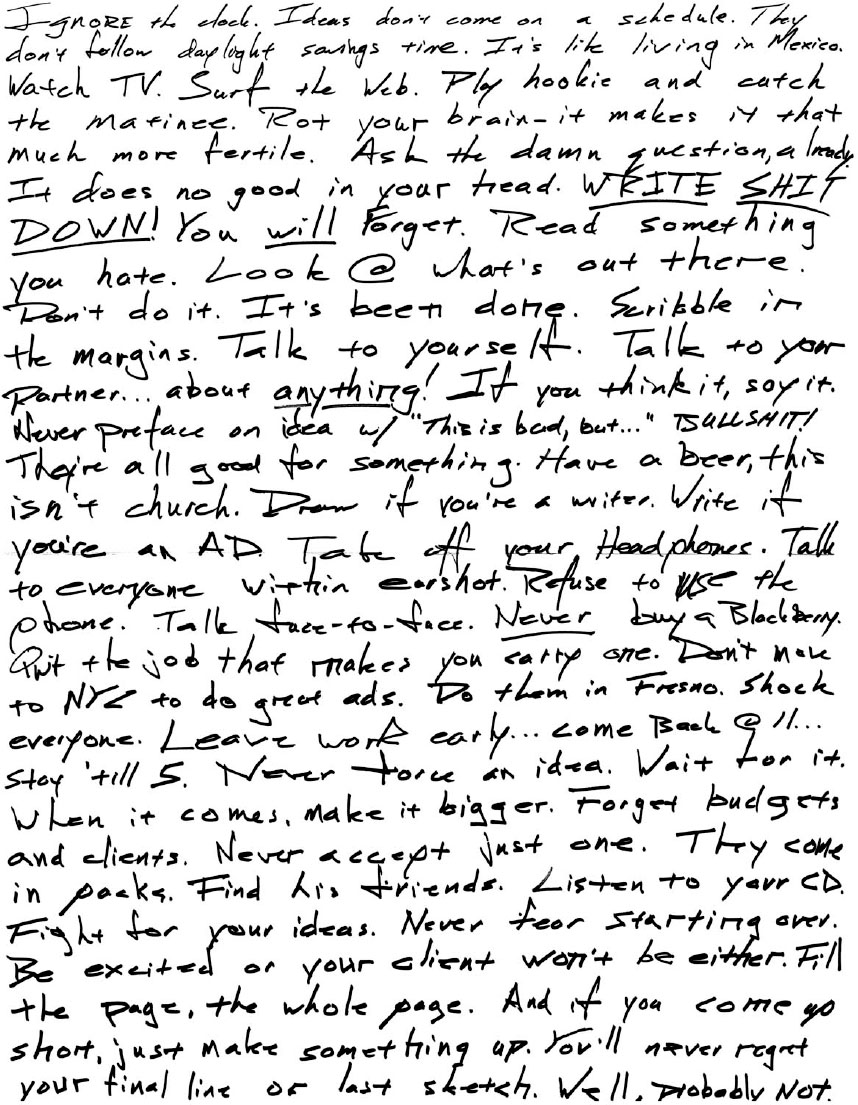 IGNORE the clock. Ideas don't come on a schedule. They
don't follow daylight savings time. It's like living in Mexico.
Watch TV. Surf the Web. Play hookie and catch
the matinee. Rot your brain-it makes it that
much more fertile. Ask the damn question, already.
It does no good in your head. WRITE SHIT
DOWN! You will Forget. Read something
you hate. Look @ what's out there.
Don't do it. It's been done. Scribble in
the margins. Talk to yourself. Talk to your
Partner... about anything! If you think it, say it.
Never preface an idea w/ "This is bad, but..." BULLSHIT!
They're all good for something. Have a beer, this
isn't church. Draw if you're a writer. Write if
you're an AD. Take off your Headphones. Talk
to everyone within earshot. Refuse to USE the
phone. Talk face-to-face. Never buy a Blackberry.
Quit the job that makes you carry one. Don't move
to NYC to do great ads. Do them in Fresno. Shock
everyone. Leave work early... come Back @ 11...
stay 'till 5. Never force an idea. Wait for it.
When it comes, make it bigger. Forget budgets
and clients. Never accept just one. They come
in packs. Find his friends. Listen to your CD.
Fight for your ideas. Never fear starting over.
Be excited or your client won't be either. Fill
the page, the whole page. And if you come up
short, just make something up. You'll never regret
your final line or last sketch. Well, probably Not.